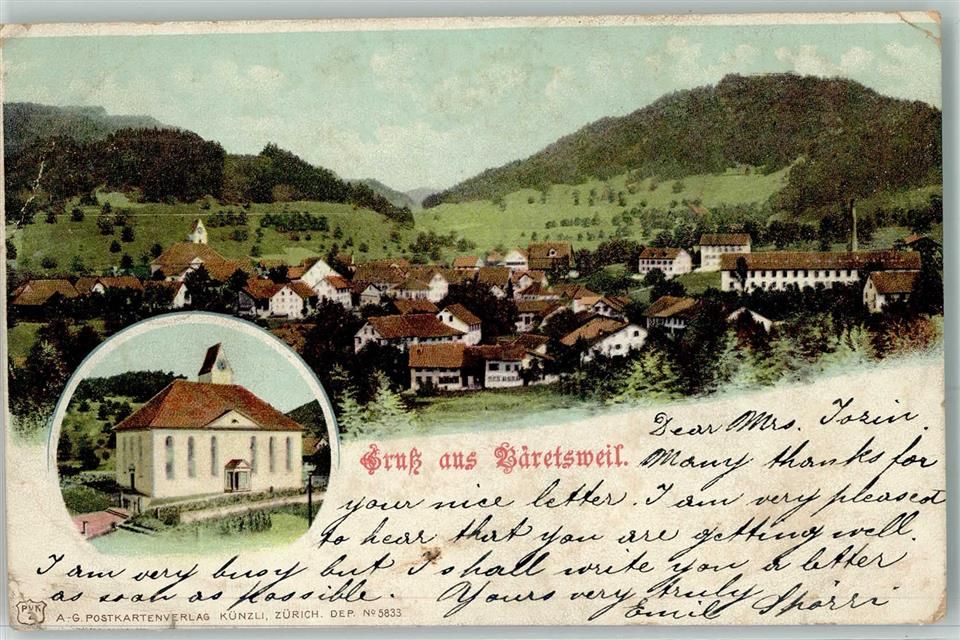 Dear Mrs. Tozin.
Gruß aus Bäretsweil.
Many thanks for
your nice letter. I am very pleased
to hear that you are getting well.
I am very busy but I shall write you a letter
as soon as possible. Yours very truly
Emil Spörri
PVK
Z
A.-G. POSTKARTENVERLAG KÜNZLI, ZÜRICH. DEP. No 5833